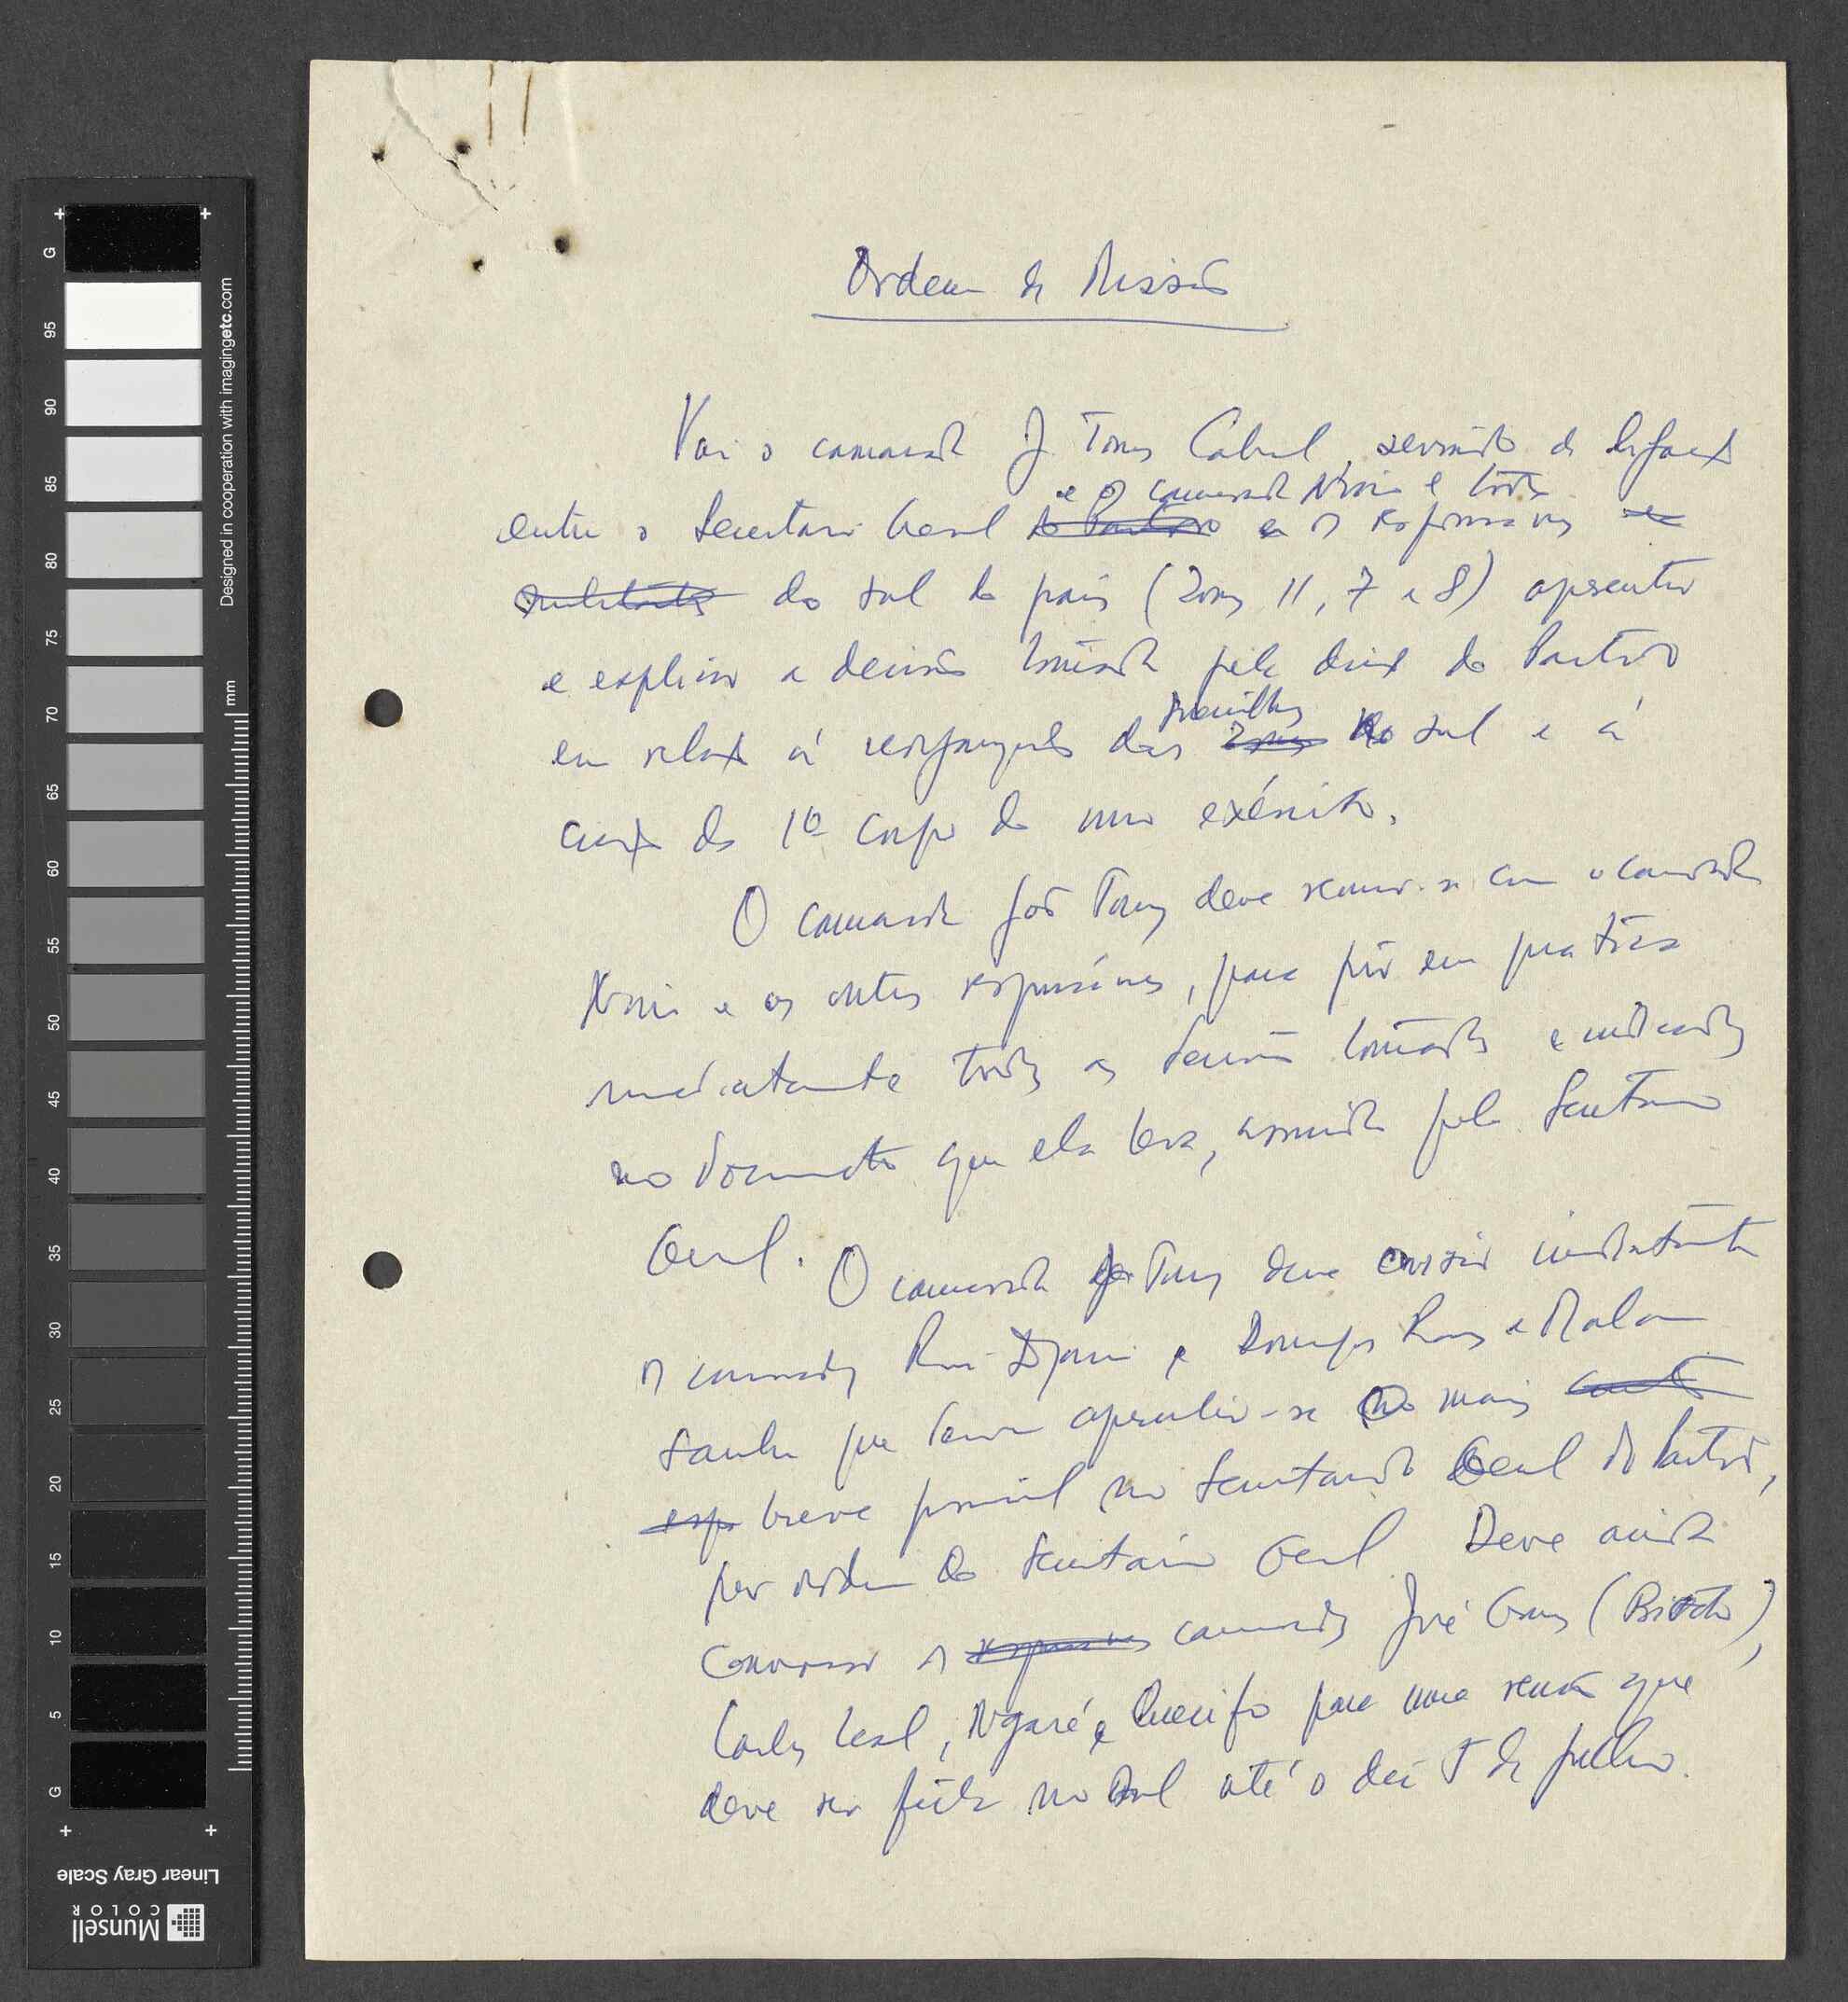 Ordem de Missão
Vai o camarada J. Tomás Cabral, servindo de ligação
e o camarada Nino e todos
entre o Secretário Geral do Partido e os responsáveis
do sul do país (Zonas 11, 7 e 8) apresentar
e explicar a decisão tomada pela direcção do Partido
em relação à reorganização das Zonas do sul e à
criação do 1º Corpo do nosso exército.
O camarada João Tomás deve reunir-se com o camarada
Nino e os outros responsáveis, para pôr em prática
imediatamente todas as decisões tomadas e indicadas
no documento que ele leva, assinado pelo Secretário
Geral.
O camarada João Tomás deve enviar imediatamente
os camaradas Rui Djassi e Domingos Ramos e Malam
Sanha que devem apresentar-se o mais
breve possível no Secretariado Geral do Partido,
por ordem do Secretário Geral. Deve ainda
convocar os responsáveis camaradas José Gomes
Carlos Leal, Ngaré e Quecifo para uma reunião que
deve ser feita no Sul até o dia 5 de julho.
Designed in cooperation with imagingetc.com
mm
G 95 90 85 80 75 70 65 60 55 50 45 40 35 30 25 20 15 10 5 G
Linear Gray Scale
Munsell
COLOR